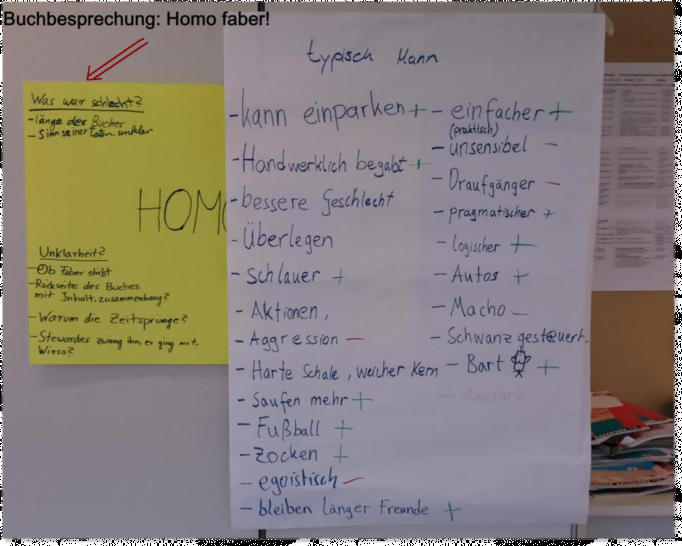 Buchbesprechung: Homo faber!
Was war schlecht?
- länge des Buches
- Sinn seiner Taten unklar
HOMO
Unklarheit?
- Ob Faber stirbt
- Rückseite des Buches
mit Inhalt. zusammenhang?
- Warum die Zeitsprünge?
- Stewardes zwang ihn, er ging mit.
Wieso?
typisch Mann
- kann einparken +
- Handwerklich begabt +
- bessere Geschlecht
- Überlegen
- Schlauer +
- Aktionen,
- Aggression -
- Harte Schale, weicher Kern
- Saufen mehr +
- Fußball +
- Zocken +
- egoistisch -
- bleiben länger Freunde +
- einfacher +
(praktisch)
- unsensibel -
- Draufgänger -
- pragmatischer +
- Logischer +
- Autos +
- Macho -
- Schwanz gesteuert -
- Bart +